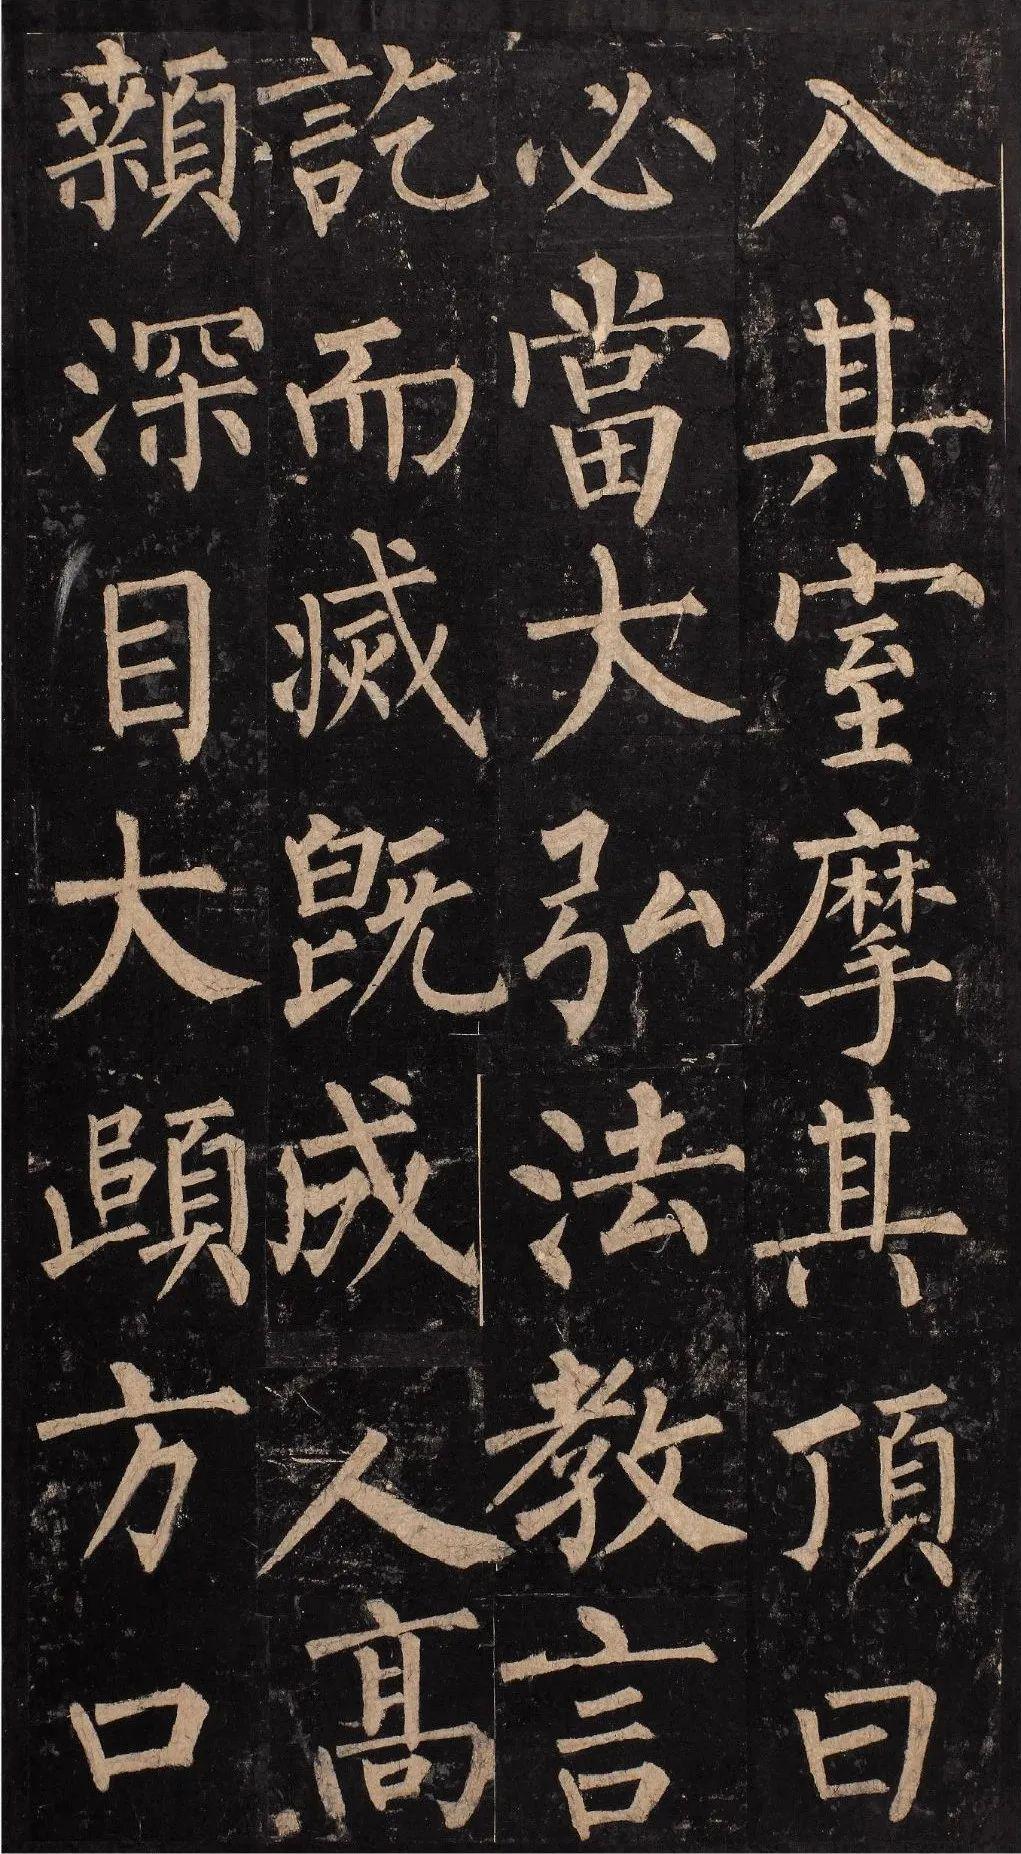 入其室摩其頂曰
必當大弘法教言
訖而滅既成人髙
顙深目大頤方口